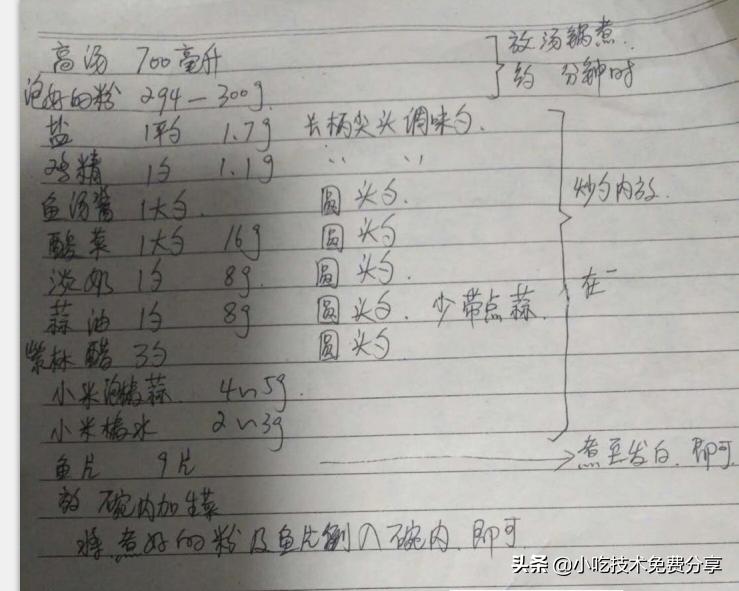 高汤 700毫升 放汤锅煮.
泡好的粉 294—300g. 约 分钟时
盐 1平勺 1.7g 长柄尖头调味勺.
鸡精 1勺 1.1g 〃 〃
鱼汤酱 1大勺. 圆头勺. 炒勺内放.
酸菜 1大勺 16g 圆头勺
淡奶 1勺 8g. 圆头勺. 在一
蒜油 1勺 8g 圆头勺. 少带点蒜.
紫林醋 3勺 圆头勺
小米泡椒蒜. 4~5g.
小米椒水 2~3g
鱼片 9片 煮至发白. 即可
碗内加生菜
将煮好的粉及鱼片倒入碗内. 即可
头条 @小吃技术免费分享